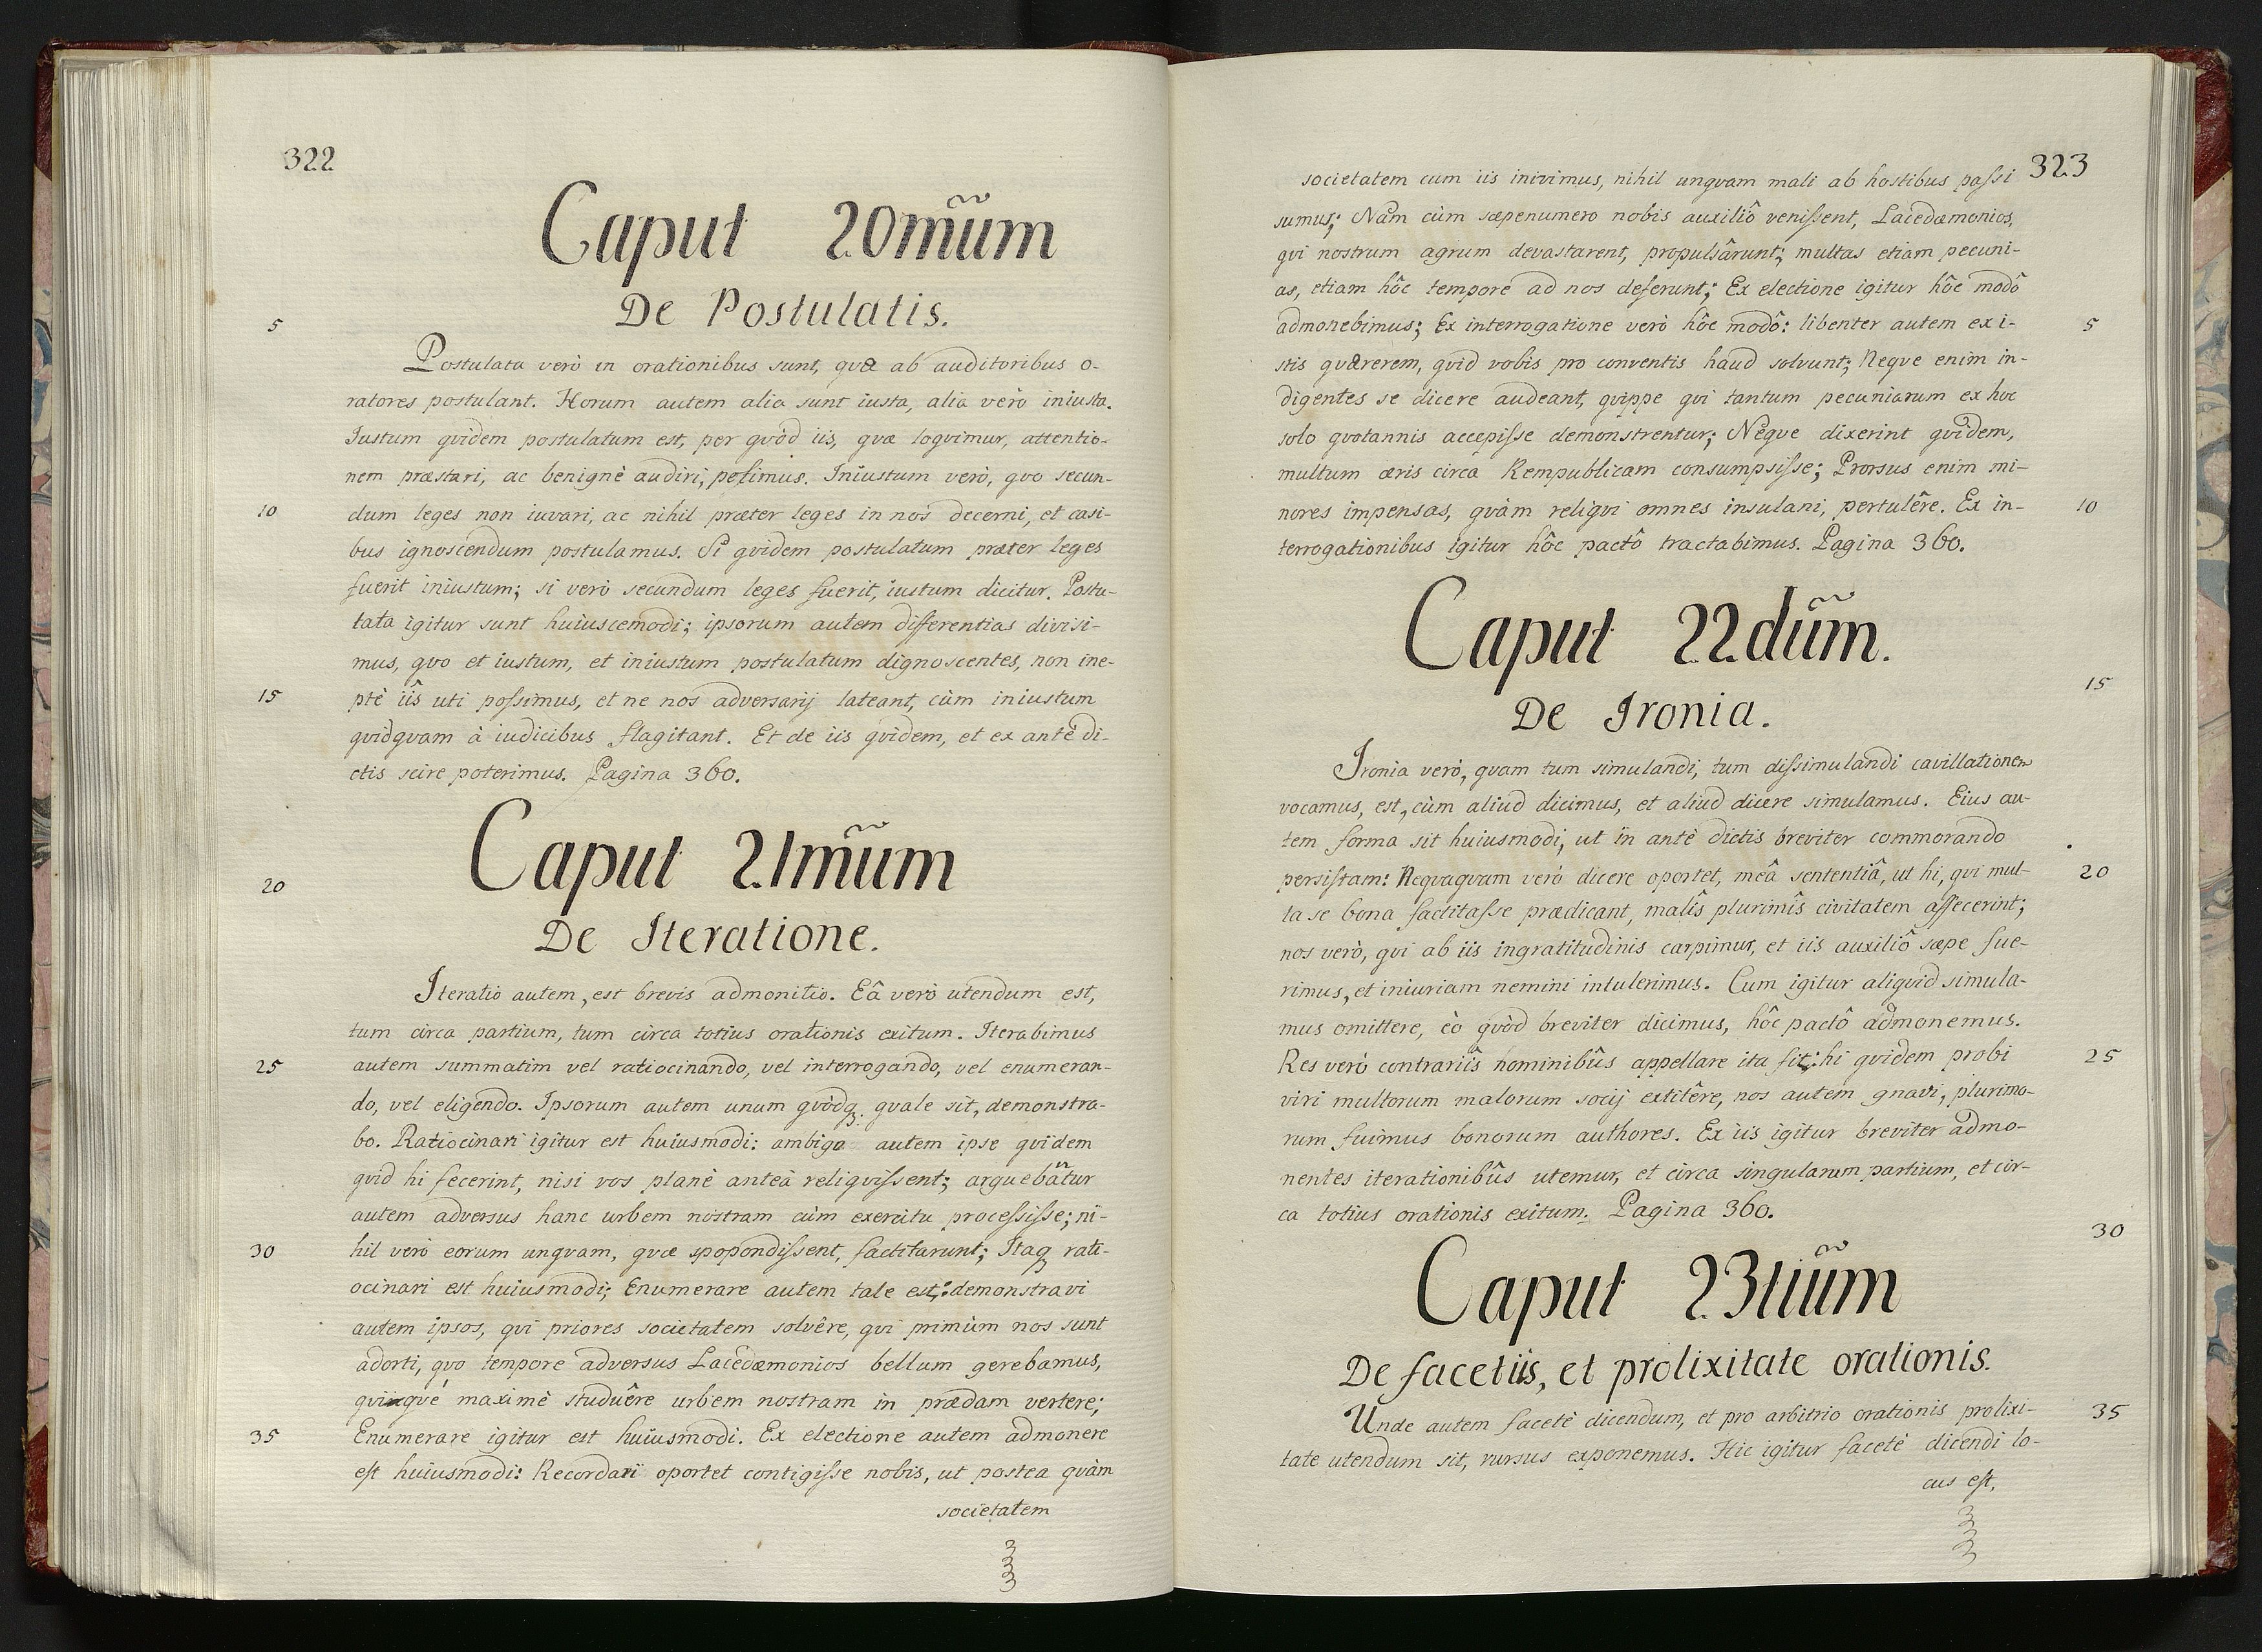 322
Caput 20mũm
De Postulatis.
5
Postulata verò in orationibus sunt, qvæ ab auditoribus o-
ratores postulant. Horum autem alia sunt iusta, alia verò iniusta.
Iustum qvidem postulatum est, per qvòd iis, qvæ loqvimur, attentio-
nem præstari, ac benignè audiri, possimus. Iniustum verò, qvo secun-
10
dum leges non iuvari, ac nihil præter leges in nos decerni, et casi-
bus ignoscendum postulamus. Si qvidem postulatum præter leges
fuerit iniustum; si verò secundum leges fuerit, iustum dicitur. Postu-
lata igitur sunt huiuscemodi; ipsorum autem differentias divisi-
mus, qvo et iustum, et iniustum postulatum dignoscentes, non ine-
15
ptè iîs uti possimus, et ne nos adversarij lateant, cùm iniustum
qvidqvam à iudicibus flagitant. Et de iis qvidem, et ex antè di-
ctis scire poterimus. Pagina 360.
Caput 21mũm
20
De Iteratione.
Iteratio autem, est brevis admonitio. Eâ verò utendum est,
tum circa partium, tum circa totius orationis exitum. Iterabimus
25
autem summatim vel ratiocinando, vel interrogando, vel enumeran-
do, vel eligendo. Ipsorum autem unum qvòdq. qvale sit, demonstra-
bo. Ratiocinari igitur est huiusmodi: ambigo autem ipse qvidem
qvid hi fecerint, nisi vos planè anteà reliqvissent; arguebãtur
autem adversus hanc urbem nostram cùm exercitu processisse; ni-
30
hil verò eorum unqvam, qvæ spopondissent, factitarunt; Itaq rati-
ocinari est huiusmodi; Enumerare autem tale est: demonstravi
autem ipsos, qvi priores societatem solvêre, qvi primùm nos sunt
adorti, qvo tempore adversus Lacedæmonios bellum gerebamus,
qviqvè maximè studuêre urbem nostram in prædam vertere;
35
Enumerare igitur est huiusmodi. Ex electione autem admonere
est huiusmodi: Recordari oportet contigisse nobis, ut postea qvàm
societatem
323
societatem cum iis inivimus, nihil unqvam mali ab hostibus passi
sumus; Nam cùm sæpenumero nobis auxiliô venissent, Lacedæmonios,
qvi nostrum agrum devastarent, propulsârunt; multas etiam pecuni-
as, etiam hôc tempore ad nos deferunt; Ex electione igitur hôc modô
admonebimus; Ex interrogatione verò hôc modô: libenter autem ex i-
5
stis qværerem, qvid vobis pro conventis haud solvunt; Neqve enim in-
digentes se dicere audeant, qvippe qvi tantum pecuniarum ex hoc
solo qvotannis accepisse demonstrentur; Neqve dixerint qvidem,
multum æris circa Rempublicam consumpsisse; Prorsus enim mi-
nores impensas, qvàm reliqvi omnes insulani, pertulêre. Ex in-
10
terrogationibus igitur hôc pactô tractabimus. Pagina 360.
Caput 22dũm.
15
De Ironia.
Ironia verò, qvam tum simulandi, tum dissimulandi cavillationem
vocamus, est, cùm aliud dicimus, et aliud dicere simulamus. Eius au-
tem forma sit huiusmodi, ut in antè dictis breviter commorando
persistam: Neqvaqvam verò dicere oportet, meâ sententiâ, ut hi, qvi mul-
20
ta se bona factitasse prædicant, malîs plurimîs civitatem affecerint;
nos verò, qvi ab iis ingratitudinis carpimur, et iis auxiliô sæpe fue-
rimus, et iniuriam nemini intulerimus. Cum igitur aliqvid simula-
mus omittere, eò qvòd breviter dicimus, hôc pactô admonemus.
Res verò contrariîs nominibûs appellare ita fit: hi qvidem probi
25
viri multorum malorum socij extitêre, nos autem gnavi, plurimo-
rum fuimus bonorum authores. Ex iis igitur breviter admo-
nentes iterationibûs utemur, et circa singularum partium, et cir-
ca totius orationis exitum. Pagina 360.
30
Caput 23tiũm
De facetiis, et prolixitate orationis.
Unde autem facetè dicendum, et pro arbitrio orationis prolixi-
35
tate utendum sit, rursus exponemus. Hic igitur facetè dicendi lo-
cus est,